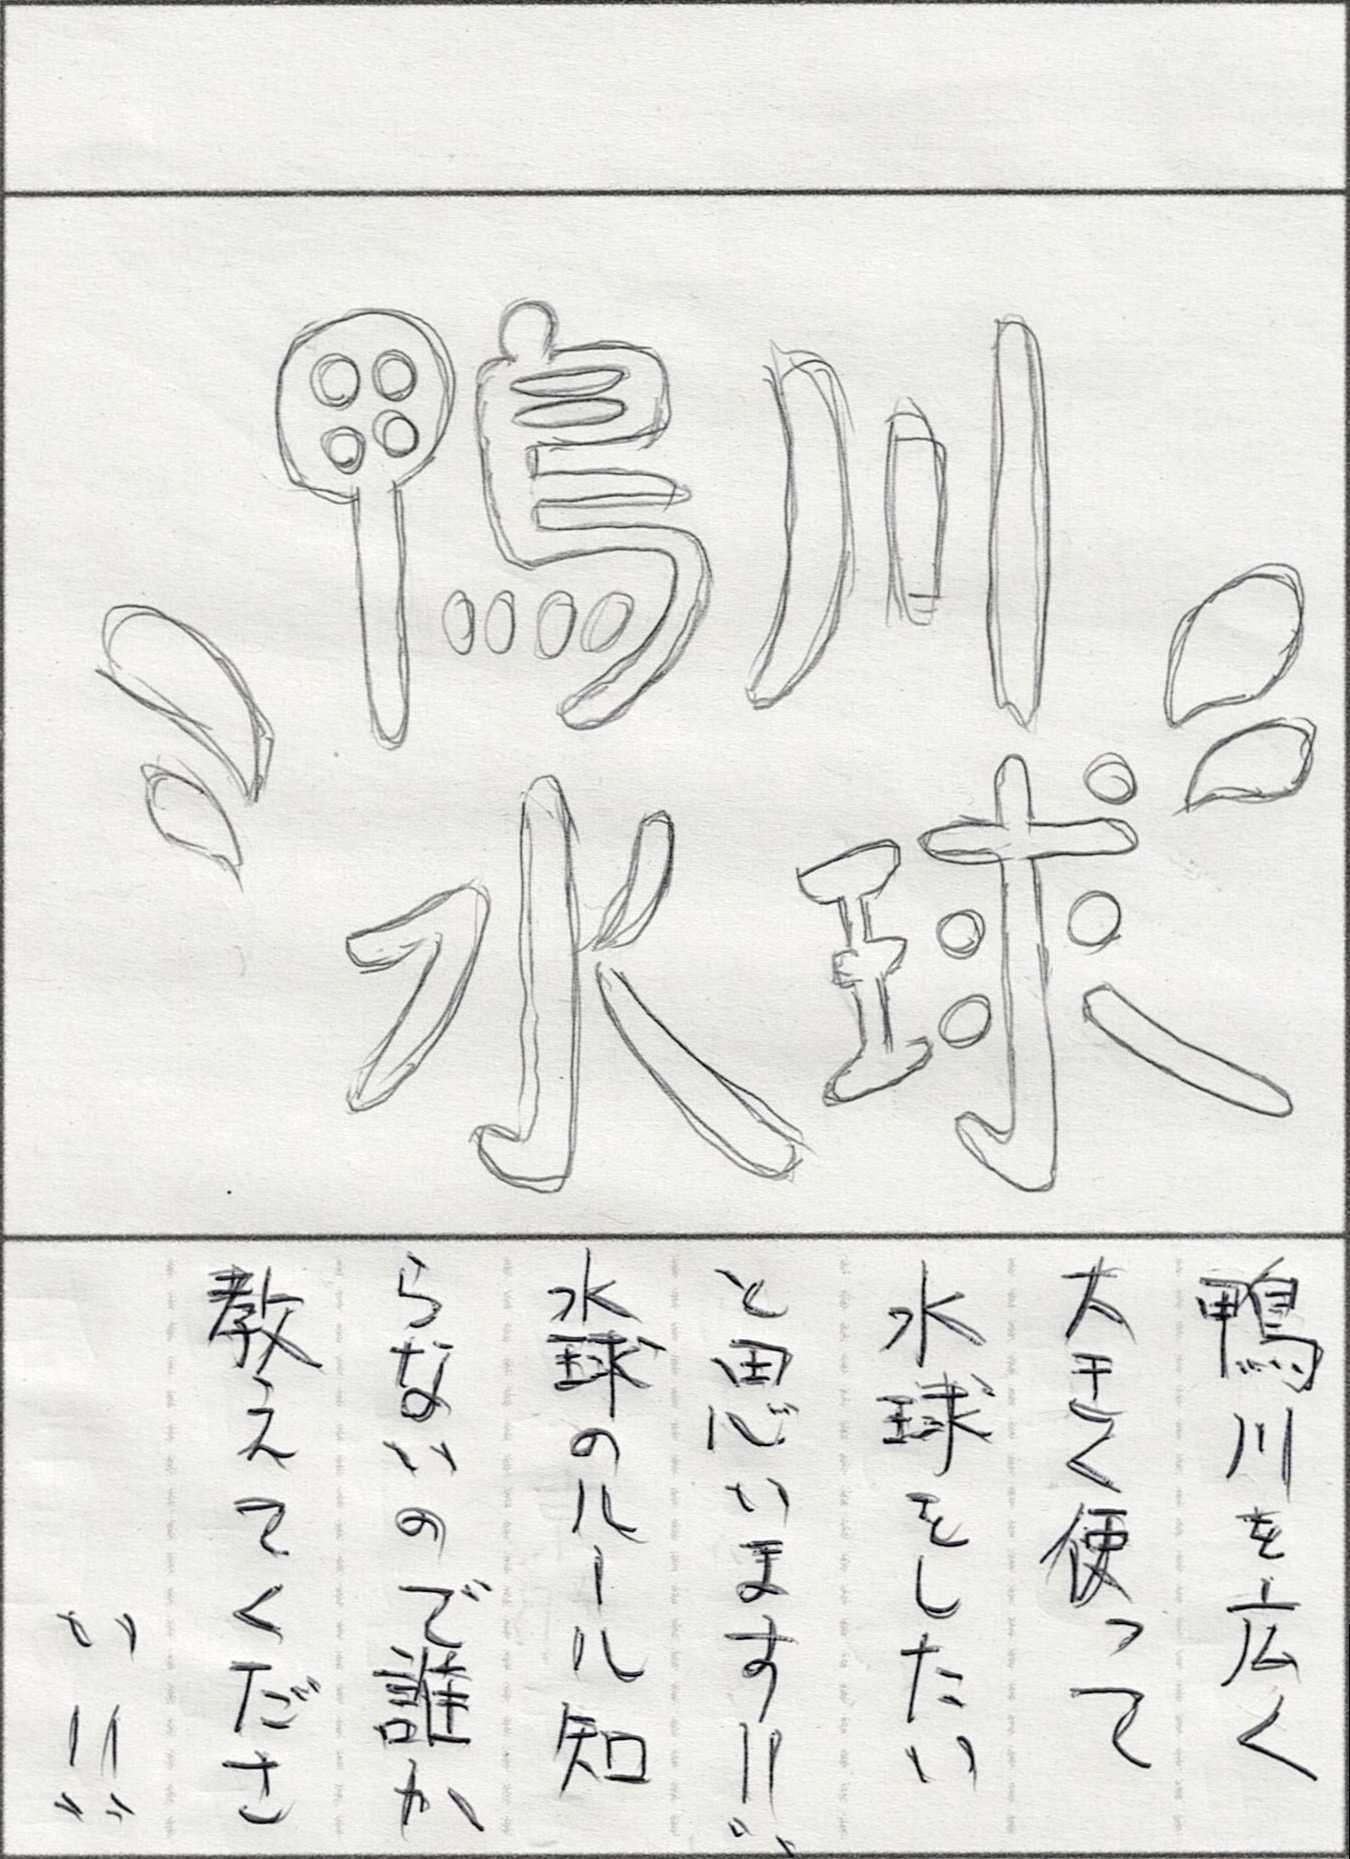 鴨川
水球
鴨川を広く
大きく使って
水球をしたい
と思います!!
水球のルール知
らないので誰か
教えてくださ
い!!